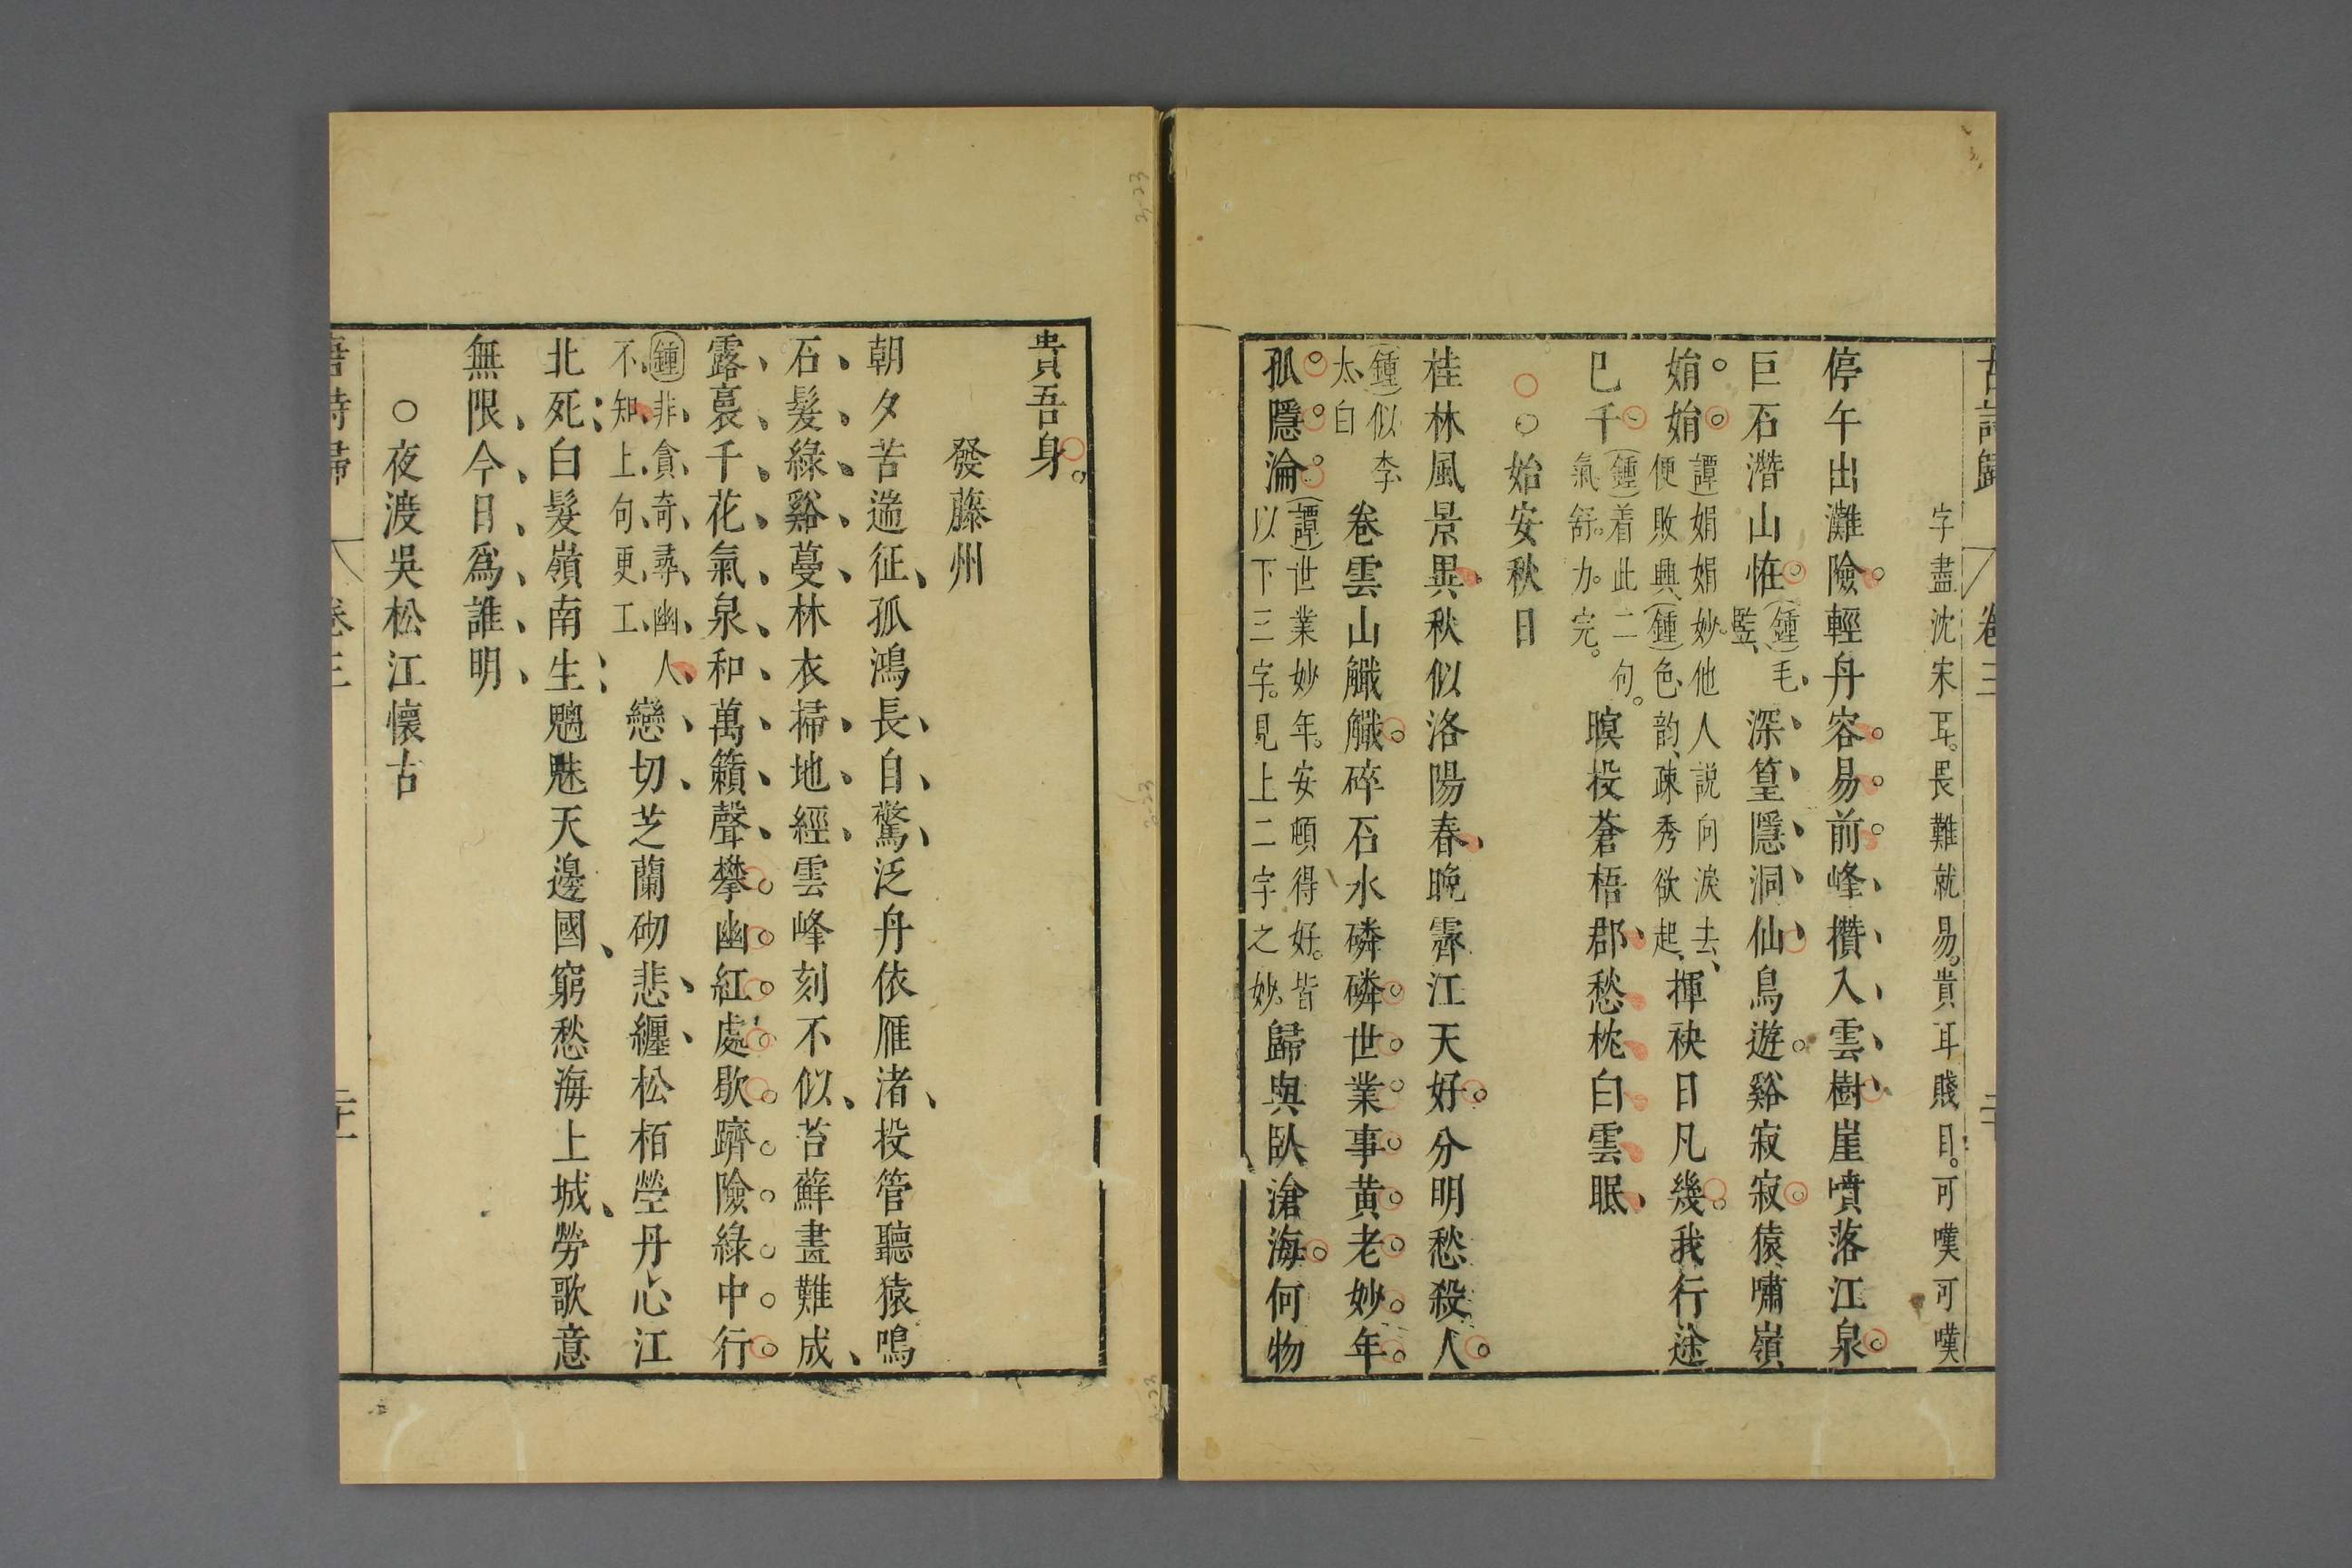 古詩歸 卷三 二十
字盡沈宋耳。畏難就易。貴耳賤目。可嘆可嘆
停午出灘險輕舟容易前峰攢入雲樹崖噴落江泉
巨石潛山恠
鍾毛
監
深篁隱洞仙鳥遊谿寂寂猿嘯嶺
娟娟
譚娟娟妙他人說向淚去
便敗興鍾色韵疎秀欲起
揮袂日凡幾我行途
已千
鍾着此二句。
氣舒。力完。
暝投蒼梧郡愁枕白雲眠
○始安秋日
桂林風景異秋似洛陽春晚霽江天好分明愁殺人
鍾似李
太白
卷雲山䚀䚀碎石水磷磷世業事黃老妙年
孤隱淪
譚世業妙年。安頓得好。皆
以下三字。見上二字之妙
歸與臥滄海何物
貴吾身。
發藤州
朝夕苦遄征孤鴻長自驚泛舟依雁渚投管聽猿鳴
石髮綠谿蔓林衣掃地經雲峰刻不似苔蘚畫難成
露裛千花氣泉和萬籟聲攀幽紅處歇躋險綠中行
鍾非貪奇尋幽人
不知上句更工
戀切芝蘭砌悲纏松栢塋丹心江
北死白髮嶺南生魑魅天邊國窮愁海上城勞歌意
無限今日爲誰明
○夜渡吳松江懷古
唐詩歸 卷三 二十一